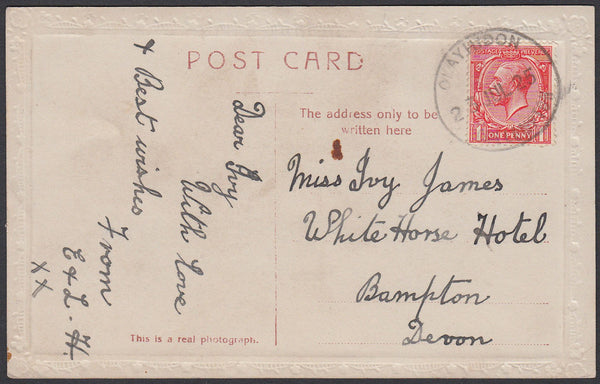 POST CARD
Dear Ivy
With love
+ Best wishes
From
E & L. H.
x x
The address only to be
written here
Miss Ivy James
White Horse Hotel
Bampton
Devon
This is a real photograph.
POSTAGE REVENUE
ONE PENNY